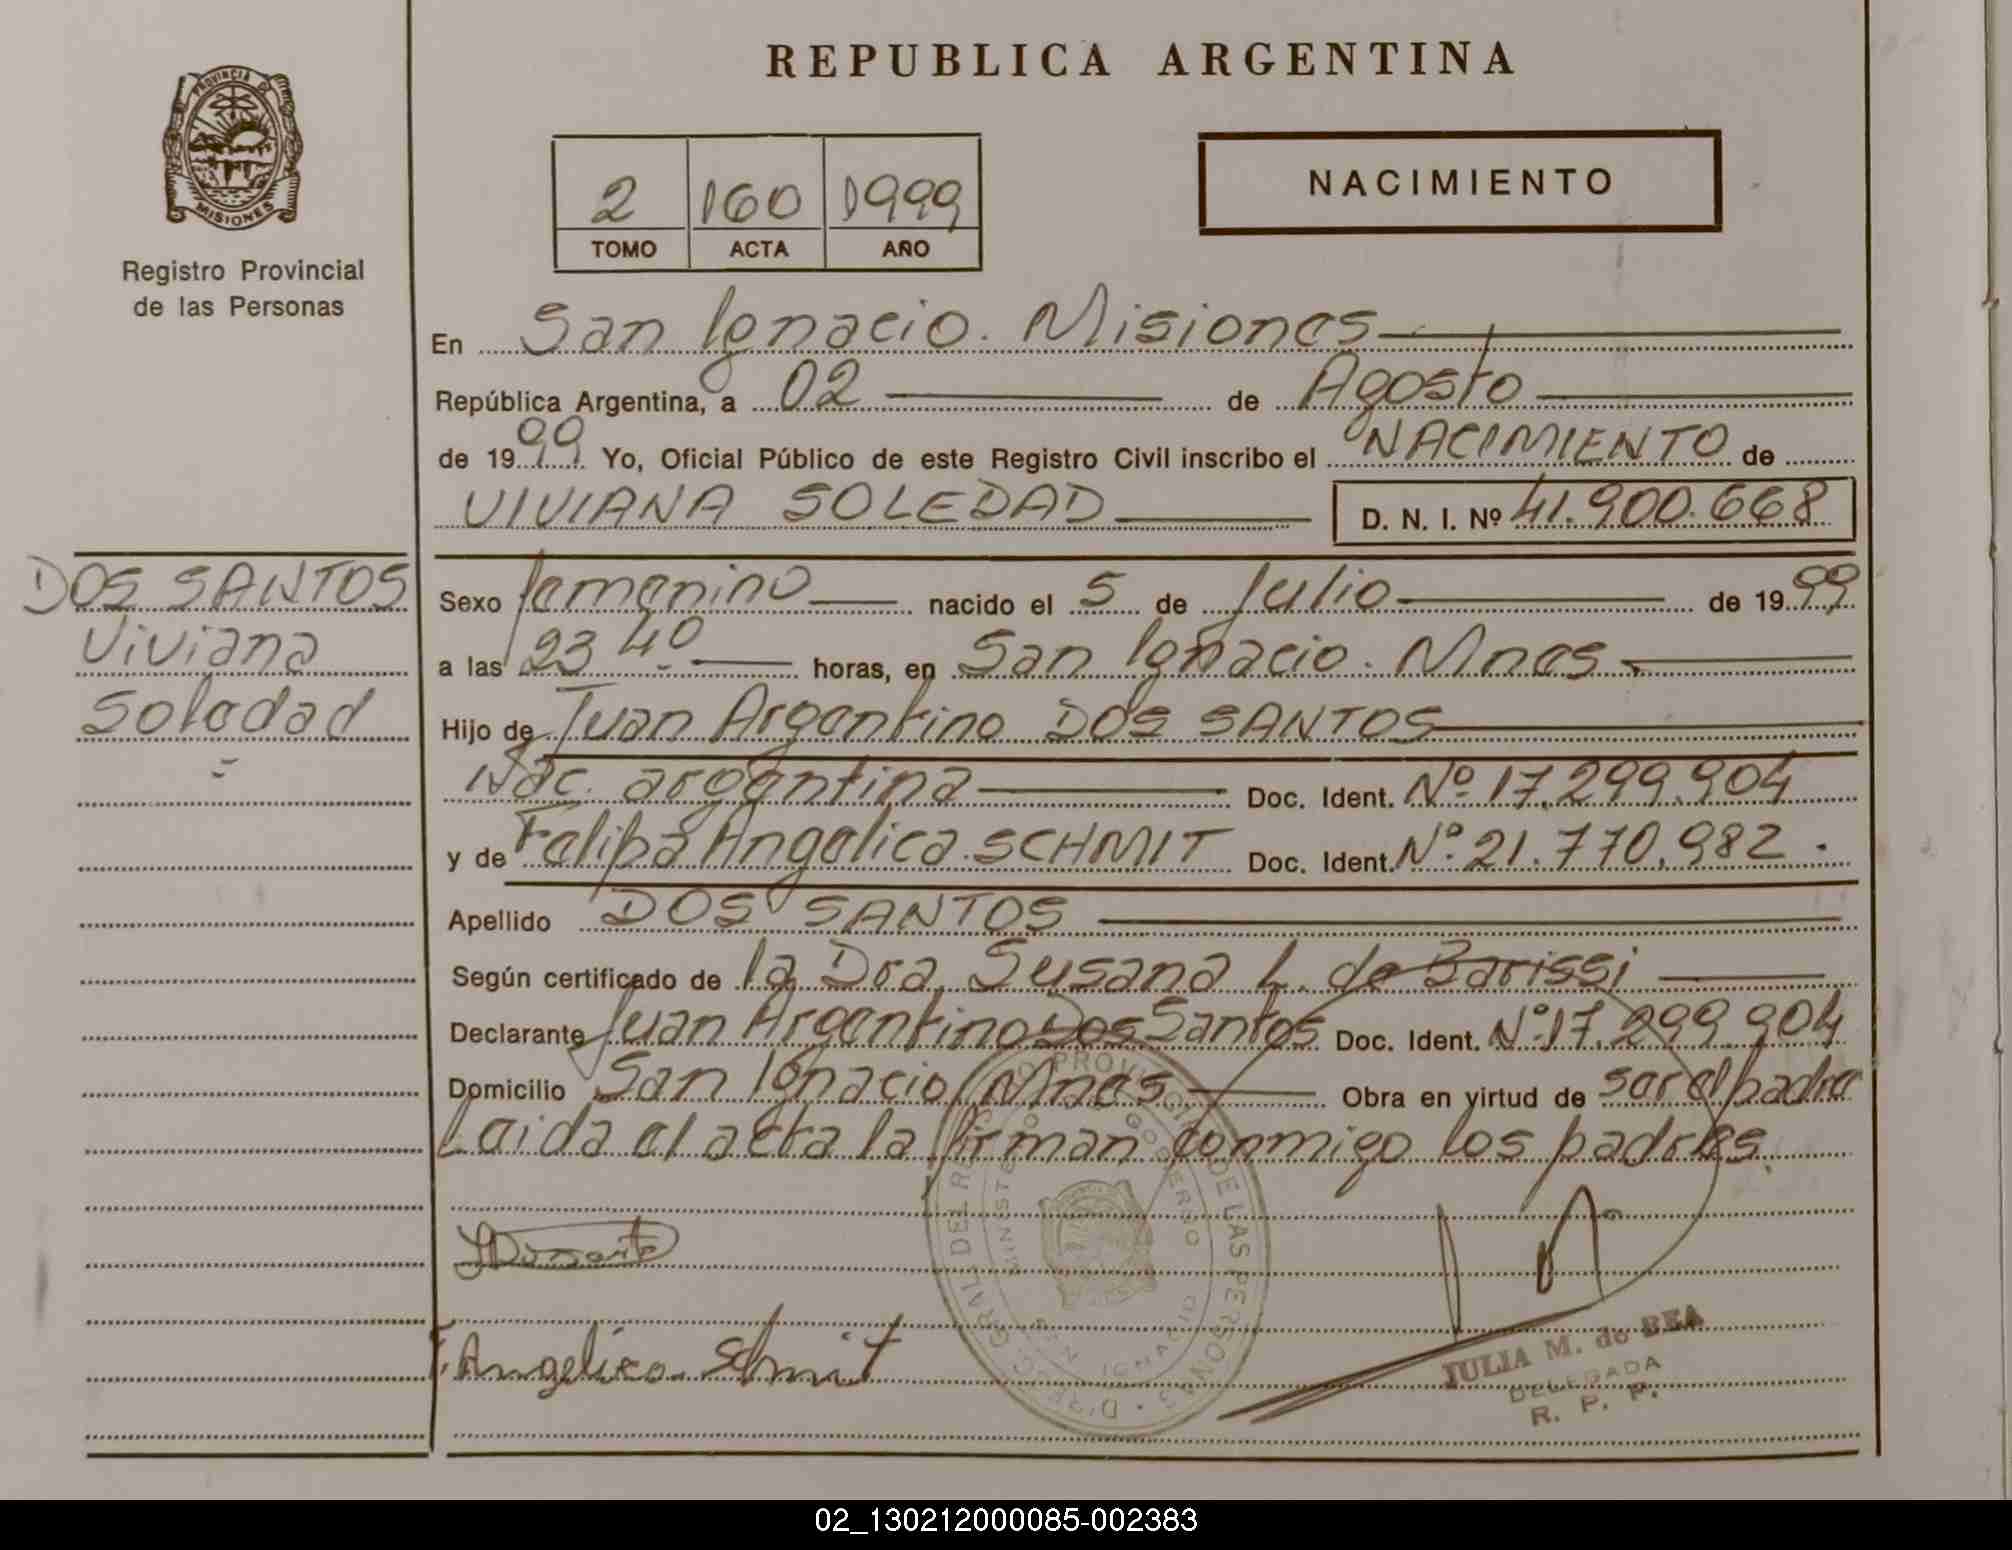 REPUBLICA ARGENTINA
PROVINCIA
MISIONES
Registro Provincial
de las Personas
2 160 1999
TOMO ACTA AÑO
NACIMIENTO
En San Ignacio. Misiones
República Argentina, a 02 de Agosto
de 1999 Yo, Oficial Público de este Registro Civil inscribo el NACIMIENTO de
VIVIANA SOLEDAD D. N. I. Nº 41.900.668
DOS SANTOS
Viviana
Soledad
Sexo femenino nacido el 5 de Julio de 1999
a las 23 40 horas, en San Ignacio. Mnes.
Hijo de Juan Argentino DOS SANTOS
Nac. argentina Doc. Ident. Nº 17.299.904
y de Felipa Angelica SCHMIT Doc. Ident. Nº 21.770.982.
Apellido DOS SANTOS
Según certificado de la Dra. Susana L. de Barissi
Declarante Juan Argentino Dos Santos Doc. Ident. Nº 17.299.904
Domicilio San Ignacio Mnes Obra en virtud de ser el padre
Leida el acta la firman conmigo los padres.
F. Angelica Smit
JULIA M. de BEA
DELEGADA
R. P. P.
02_130212000085-002383